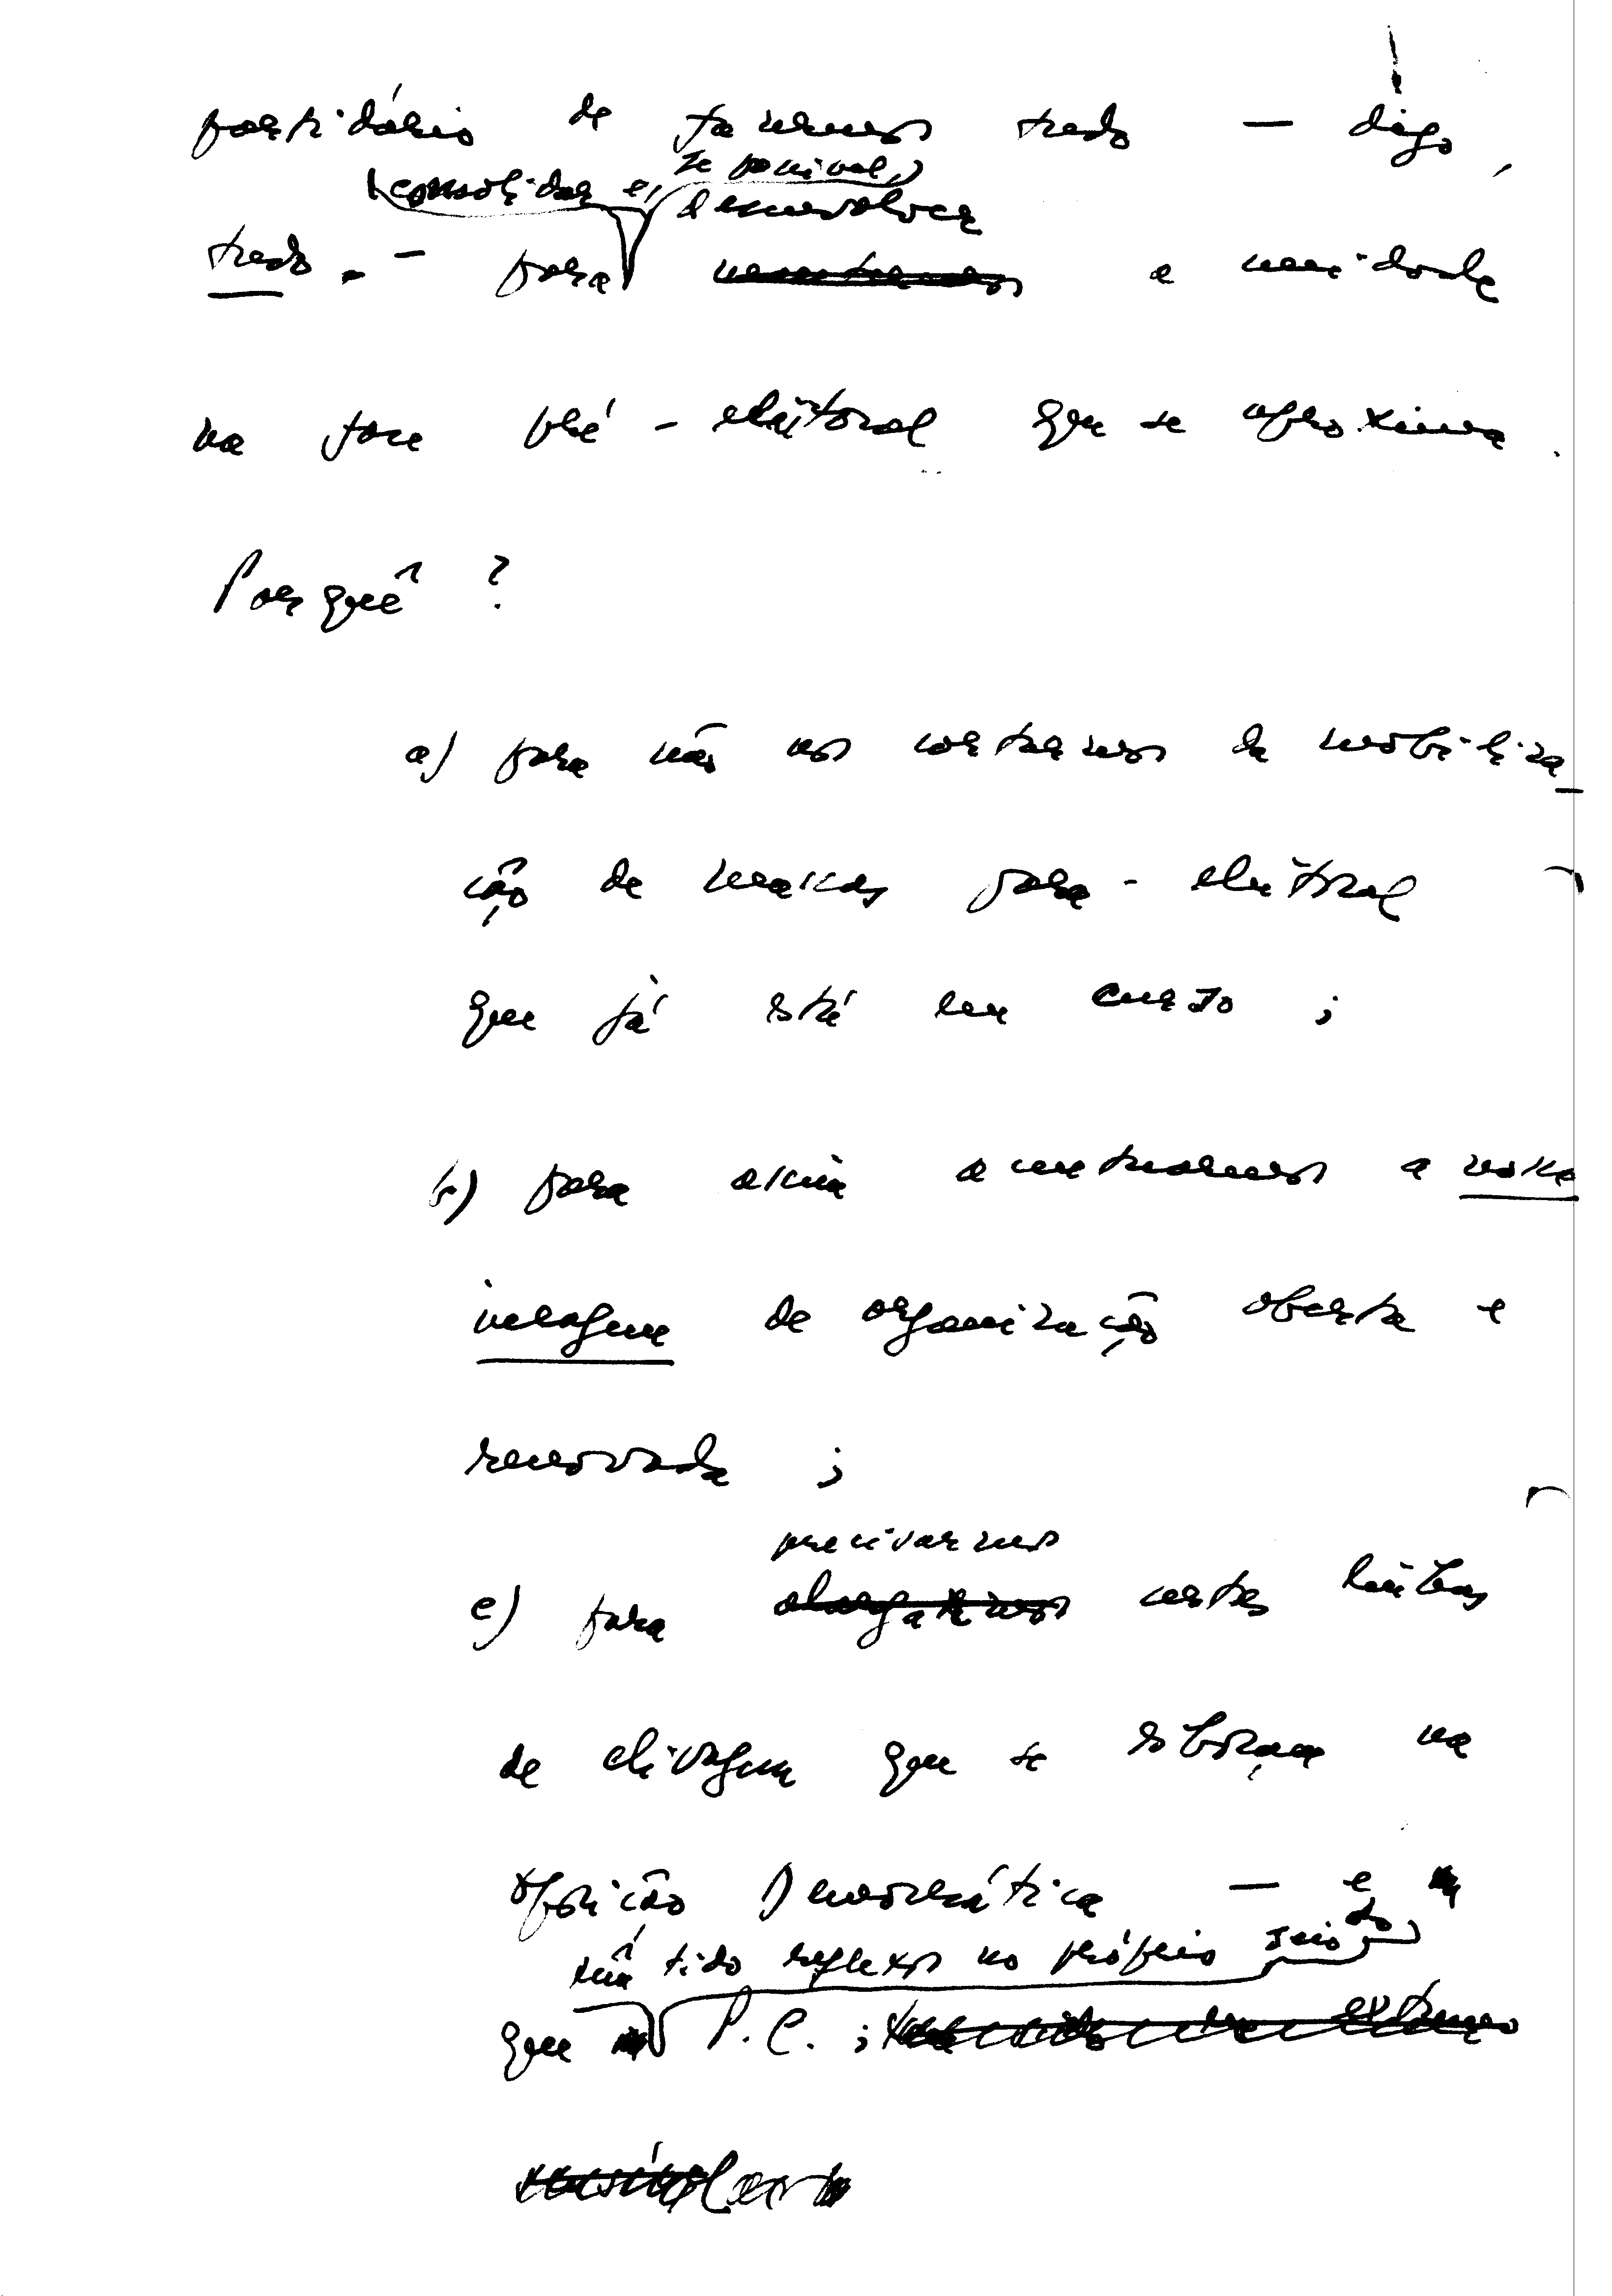 partidário de fazermos tudo — digo,
consolidar e, se possível,
desenvolver
tudo. — para mantermos a unidade
na fase pré-eleitoral que se aproxima.
Porquê?
a) para não nos cortarmos da mobiliza-
ção de massas para-eleitoral
que já está em curso;
b) para assim acentuarmos a nossa
imagem de organização aberta e
renovada;
precisarmos
c) para alargarmos certas linhas
de clivagem que se esboçam na
Oposição Democrática — e
têm tido reflexos no próprio seio do
que P.C.;